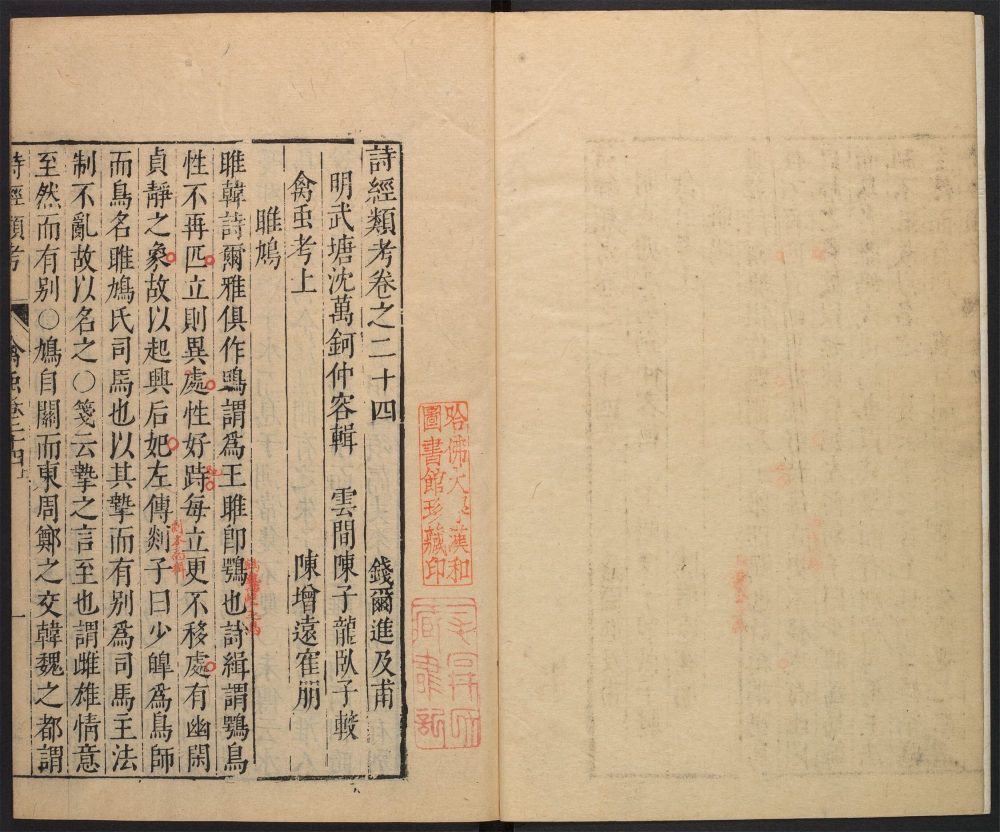 詩經類考卷之二十四 錢爾進及甫
明武塘沈萬鈳仲容輯 雲間陳子龍臥子較
禽虫考上 陳增遠崔朋
雎鳩
雎韓詩爾雅俱作鴡謂爲王雎卽鶚也詩緝謂鶚鳥
性不再匹立則異處性好跱每立更不移處有幽閑
貞靜之象故以起興后妃左傳剡子曰少皥爲鳥師
而鳥名雎鳩氏司馬也以其摯而有别爲司馬主法
制不亂故以名之〇箋云摯之言至也謂雌雄情意
至然而有别〇鳩自關而東周鄭之交韓魏之都謂
詩經類考 禽虫卷二十四 一
哈佛大學漢和
圖書館珍藏印